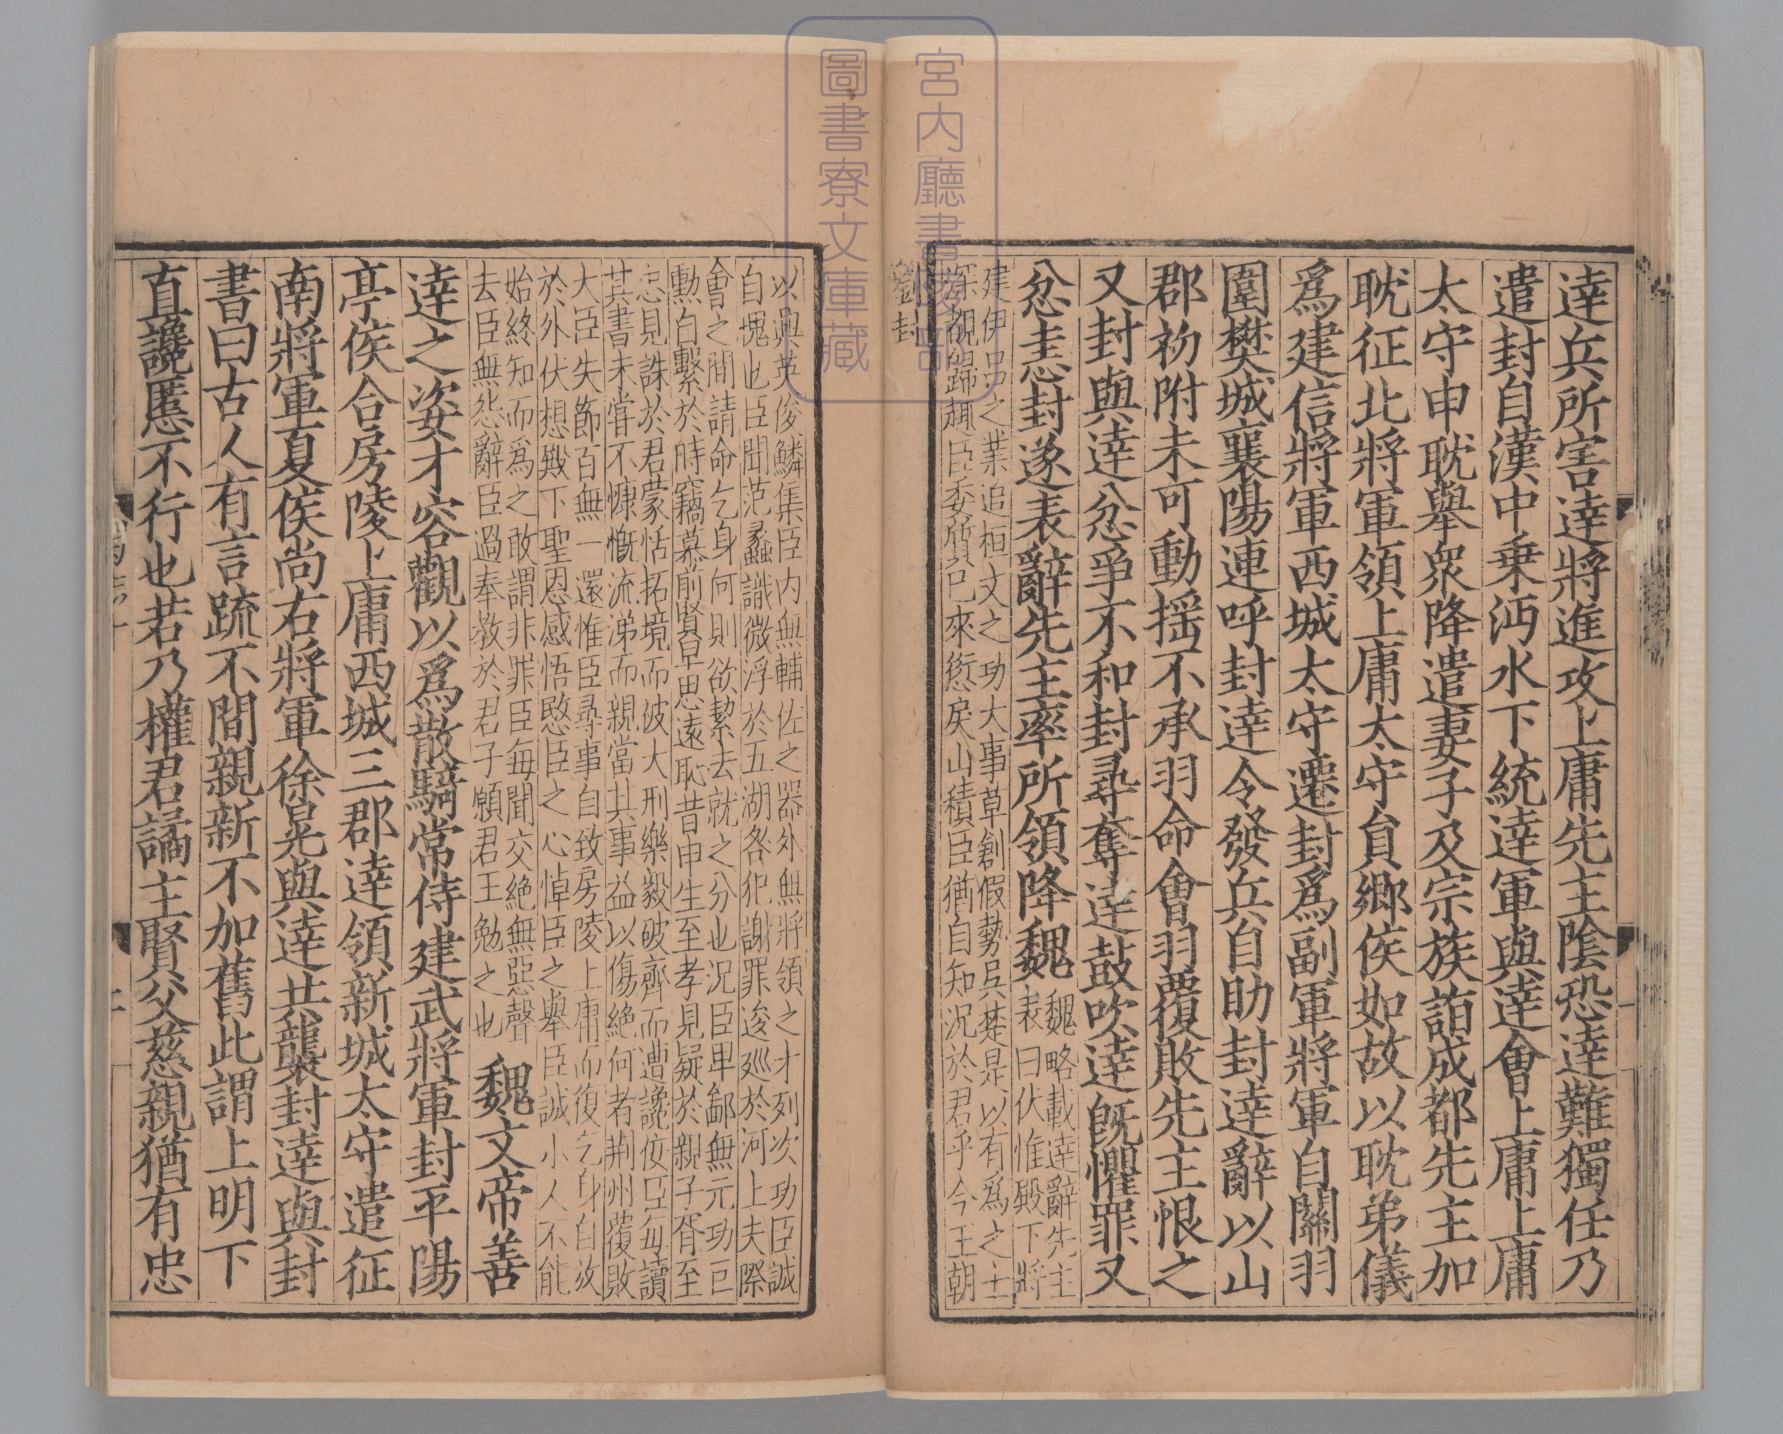 達兵所害達將進攻上庸先主隂恐達難獨任乃
遣封自漢中乗沔水下統達軍與達會上庸上庸
太守申耽舉衆降遣妻子及宗族詣成都先主加
耽征北將軍領上庸太守員鄉侯如故以耽弟儀
爲建信將軍西城太守遷封爲副軍將軍自關羽
圍樊城襄陽連呼封達令發兵自助封達辭以山
郡初附未可動揺不承羽命會羽覆敗先主恨之
又封與達忿爭不和封尋奪達鼓吹達旣懼罪又
忿恚封遂表辭先主率所領降魏
魏略載達辭先主
表曰伏惟殿下將
建伊呂之業追桓文之功大事草創假勢吳楚是以有爲之士
深覩歸趣臣委質已來愆戾山積臣猶自知况於君乎今王朝
劉封
以興英俊鱗集臣内無輔佐之器外無將領之才列次功臣誠
自愧也臣聞范蠡識微浮於五湖咎犯謝罪逡廵於河上夫際
會之間請命乞身何則欲絜去就之分也况臣卑鄙無元功巨
勳自繫於時竊慕前賢早思遠恥昔申生至孝見疑於親子胥至
忠見誅於君蒙恬拓境而被大刑樂毅破齊而遭讒佞臣每讀
其書未甞不慷慨流涕而親當其事益以傷絶何者荆州覆敗
大臣失節百無一還惟臣尋事自致房陵上庸而復乞身自放
於外伏想殿下聖恩感悟愍臣之心悼臣之舉臣誠小人不能
始終知而爲之敢謂非罪臣每聞交絶無惡聲
去臣無怨辭臣過奉教於君子願君王勉之也
魏文帝善
達之姿才容觀以爲散騎常侍建武將軍封平陽
亭侯合房陵上庸西城三郡達領新城太守遣征
南將軍夏侯尚右將軍徐晃與達共襲封達與封
書曰古人有言疏不間親新不加舊此謂上明下
直讒慝不行也若乃權君譎主賢父慈親猶有忠
宮内廳書陵部
圖書寮文庫藏